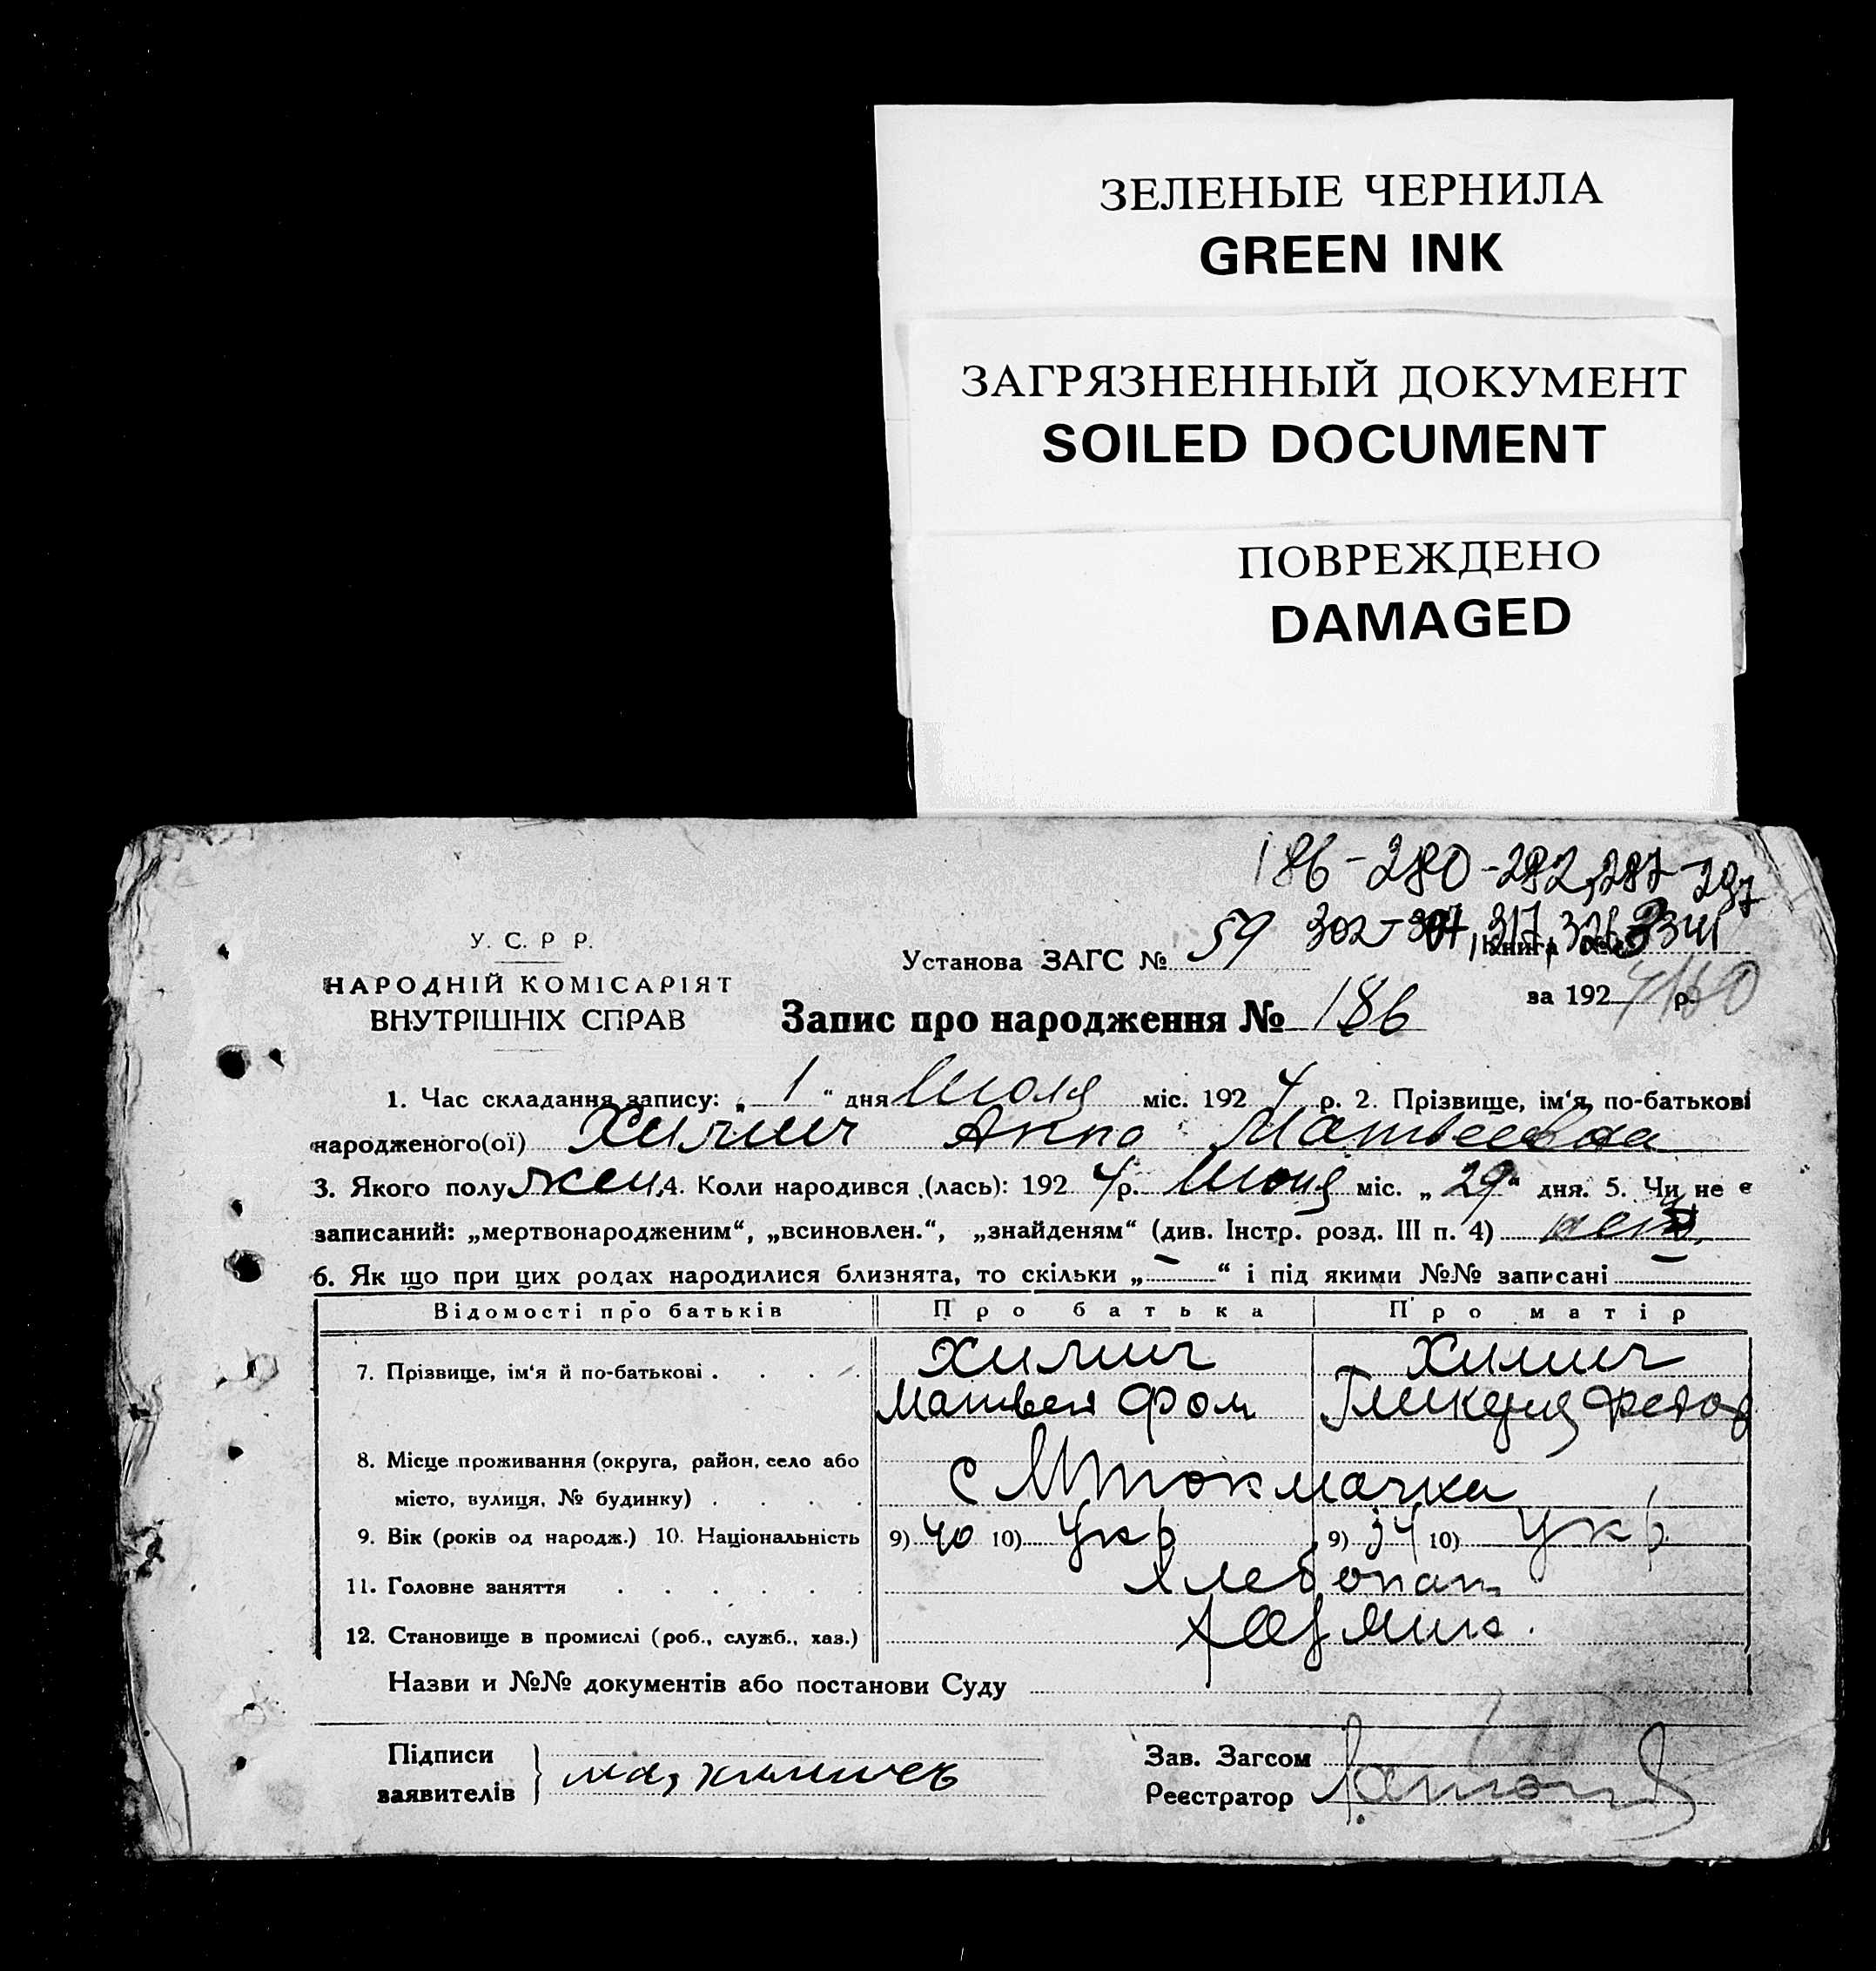 ЗЕЛЕНЫЕ ЧЕРНИЛА
GREEN INK
ЗАГРЯЗНЕННЫЙ ДОКУМЕНТ
SOILED DOCUMENT
ПОВРЕЖДЕНО
DAMAGED
186-280-282,287-297
302-307, 317, 326, 3341
У. С. Р Р.
НАРОДНІЙ КОМІСАРІЯТ
ВНУТРІШНІХ СПРАВ
Установа ЗАГС № 59 Книга №
за 1924 р.
Запис про народження № 186
1. Час складання запису: „ 1 “ дня Июля міс. 1924 р. 2. Прізвище, ім'я, по-батькові
народженого(ої) Химич Анна Матвеевна
3. Якого полу жен. 4. Коли народився (лась): 1924 р. Июня міс. „ 29 “ дня. 5. Чи не є
записаний: „мертвонародженим“, „всиновлен.“, „знайденям“ (див. Інстр. розд. III п. 4) нет
6. Як що при цих родах народилися близнята, то скільки „ – “ і під якими №№ записані –
Відомості про батьків Про батька Про матір
7. Прізвище, ім'я й по-батькові . . . . Химич Химич
Матвей Фом Гликерия Федор
8. Місце проживання (округа, район, село або
місто, вулиця, № будинку) . . . . с М Токмачка
9. Вік (років од народж.) 10. Національність 9) 40 10) Укр 9) 34 10) Укр.
11. Головне заняття . . . . . . Хлебопаш
12. Становище в промислі (роб., служб., хаз.) хозяин.
Назви и №№ документів або постанови Суду
Підписи
заявителів } Химичев
Зав. Загсом
Реєстратор